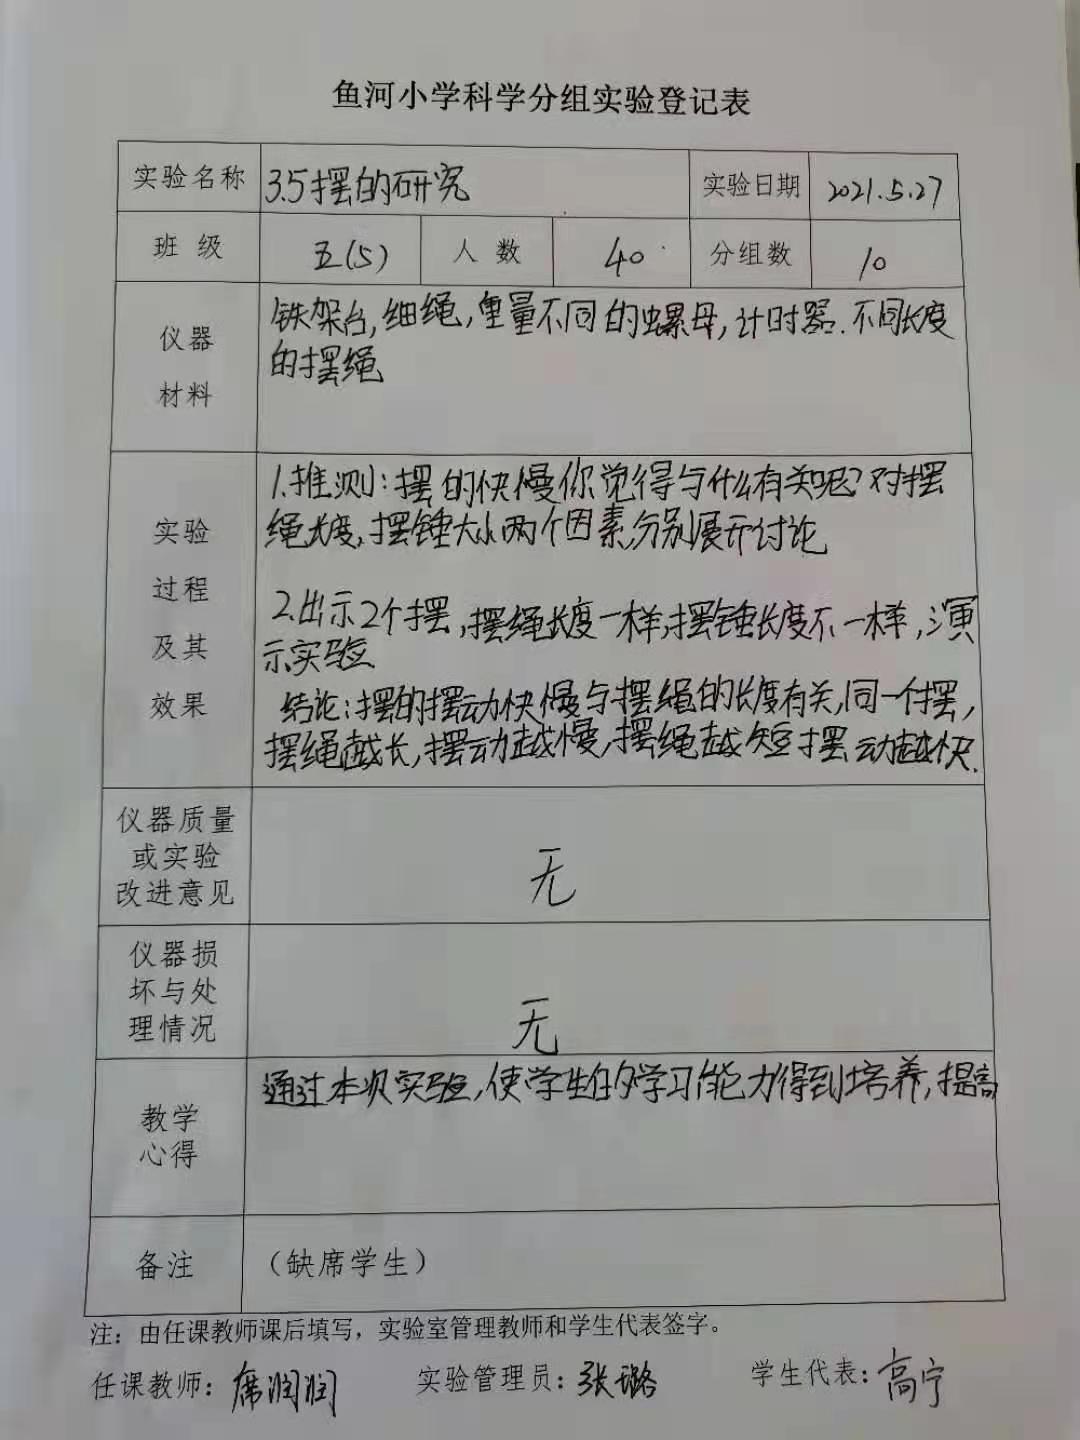 鱼河小学科学分组实验登记表
实验名称 3.5摆的研究 实验日期 2021.5.27
班 级 五(5) 人 数 40 分组数 10
仪器
材料
铁架台,细绳,重量不同的螺母,计时器.不同长度
的摆绳
实验
过程
及其
效果
1.推测:摆的快慢你觉得与什么有关呢?对摆
绳长度,摆锤大小两个因素,分别展开讨论
2.出示2个摆,摆绳长度一样,摆锤长度不一样,演
示实验
结论:摆的摆动快慢与摆绳的长度有关,同一个摆,
摆绳越长,摆动越慢,摆绳越短摆动越快.
仪器质量
或实验
改进意见
无
仪器损
坏与处
理情况
无
教学
心得
通过本次实验,使学生的学习能力得到培养,提高
备注 (缺席学生)
注：由任课教师课后填写，实验室管理教师和学生代表签字。
任课教师：席润润 实验管理员：张璐 学生代表：高宁